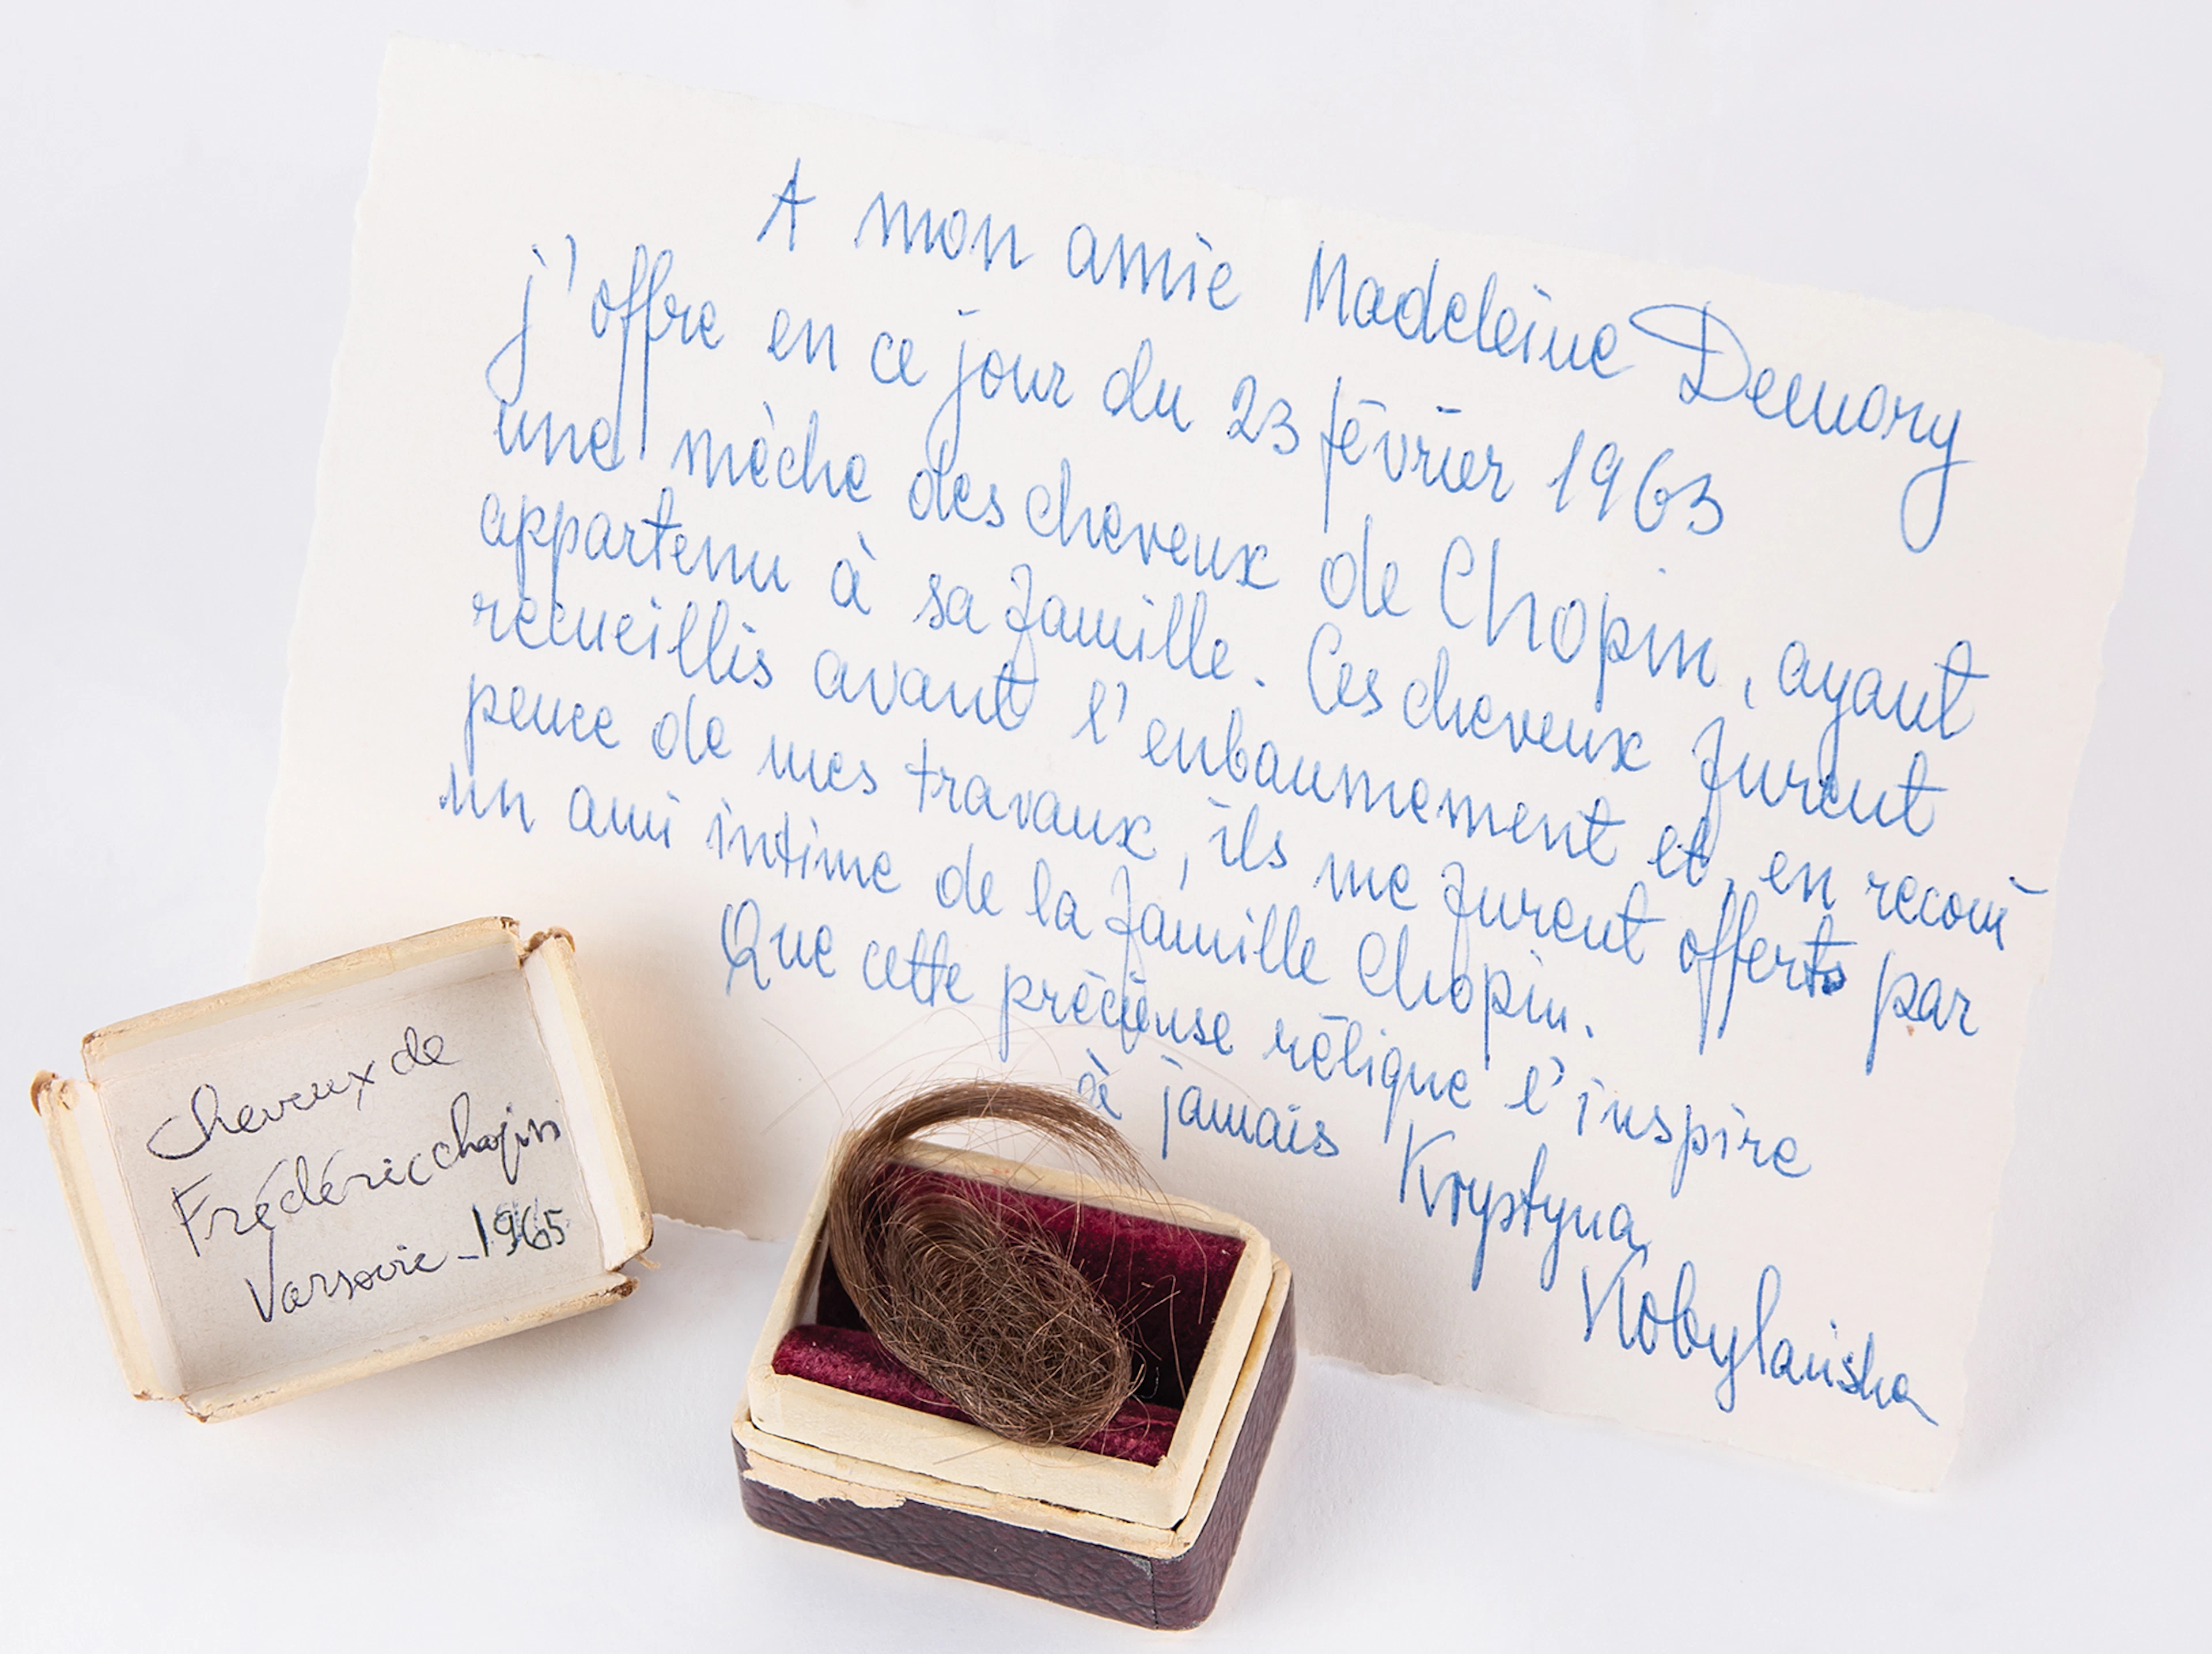 A mon amie Madeleine Demory
j'offre en ce jour du 23 février 1963
une mèche des cheveux de Chopin, ayant
appartenu à sa famille. Ces cheveux furent
recueillis avant l'enbaumement et, en reconi
pence de mes travaux, ils me furent offerts par
un ami intime de la famille Chopin.
Que cette précieuse rélique l'inspire
à jamais
Krystyna
Kobylańska
cheveux de
Frédéric chopin
Varsovie - 1965